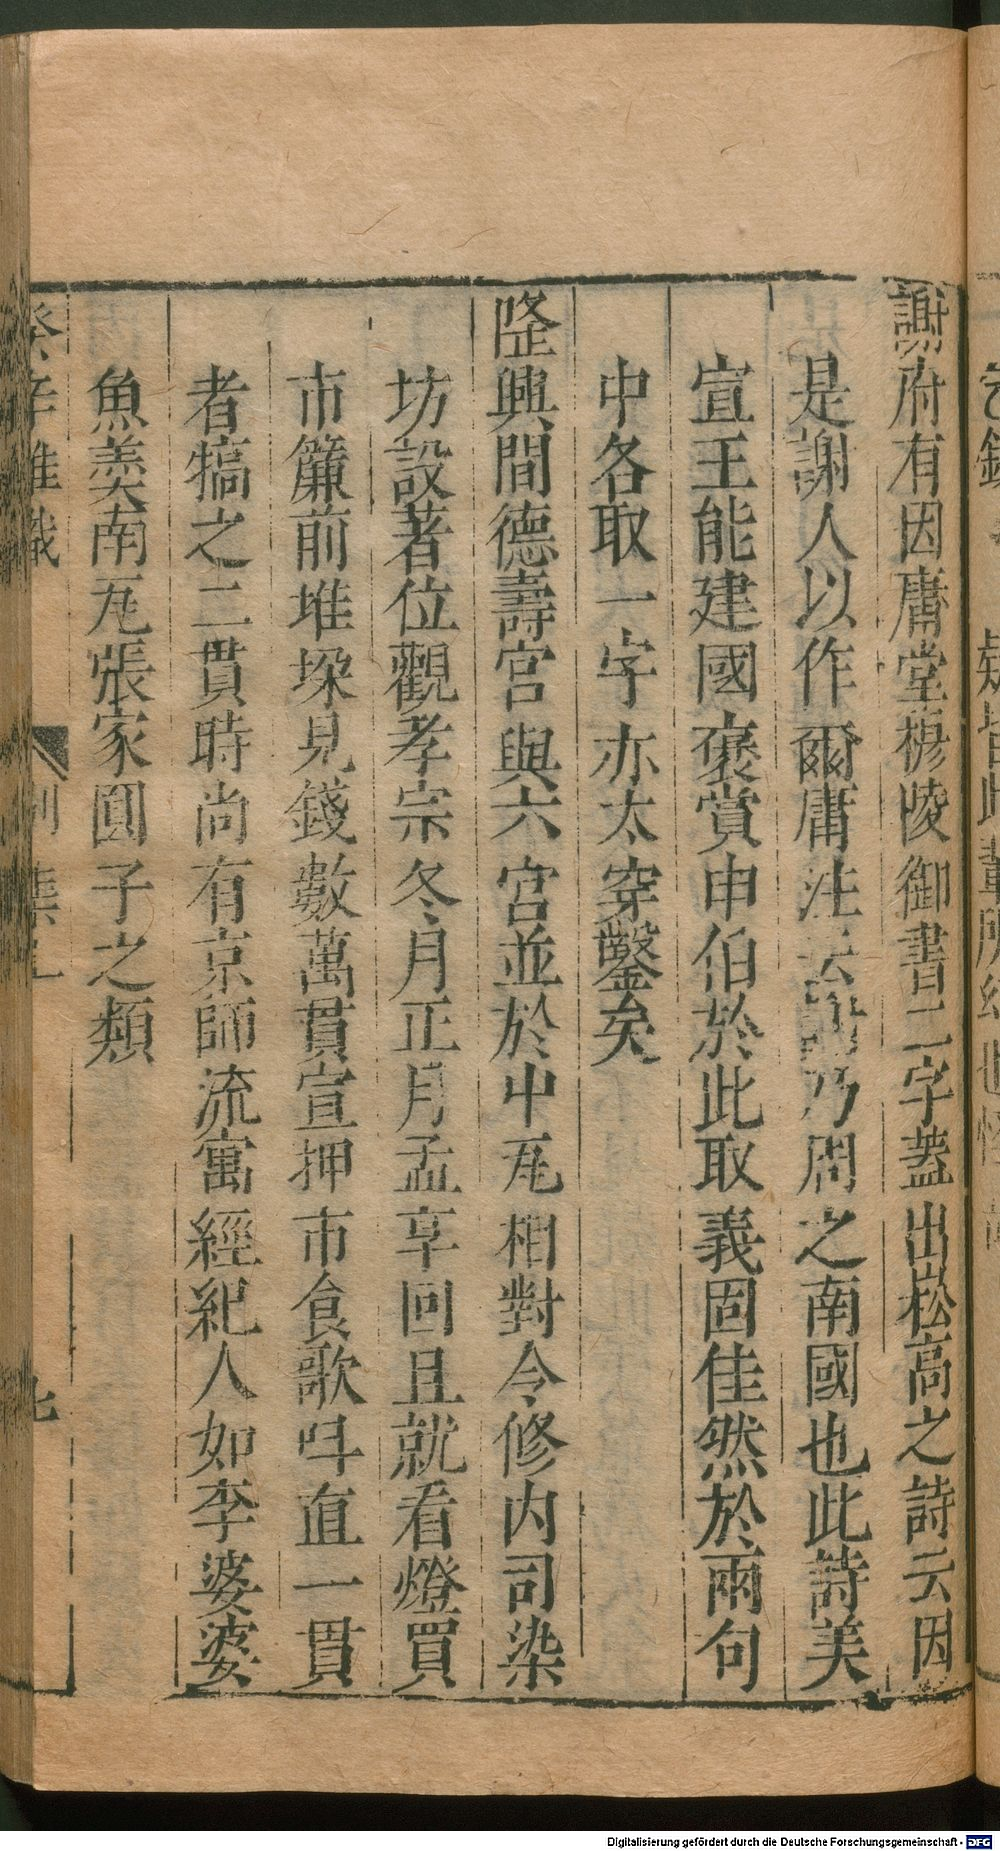 謝府有因庸堂穆陵御書二字蓋出崧高之詩云因
是謝人以作爾庸注云謝乃周之南國也此詩美
宣王能建國褒賞申伯於此取義固佳然於兩句
中各取一字亦太穿鑿矣
隆興間德壽宮與六宮並於中瓦相對令修内司染
坊設著位觀孝宗冬月正月孟享回且就看燈買
市簾前堆垛見錢數萬貫宣押市食歌呌直一貫
者犒之二貫時尚有京師流寓經紀人如李婆婆
魚羮南瓦張家圓子之類
癸辛雜識
別集
七
Digitalisierung gefördert durch die Deutsche Forschungsgemeinschaft - DFG